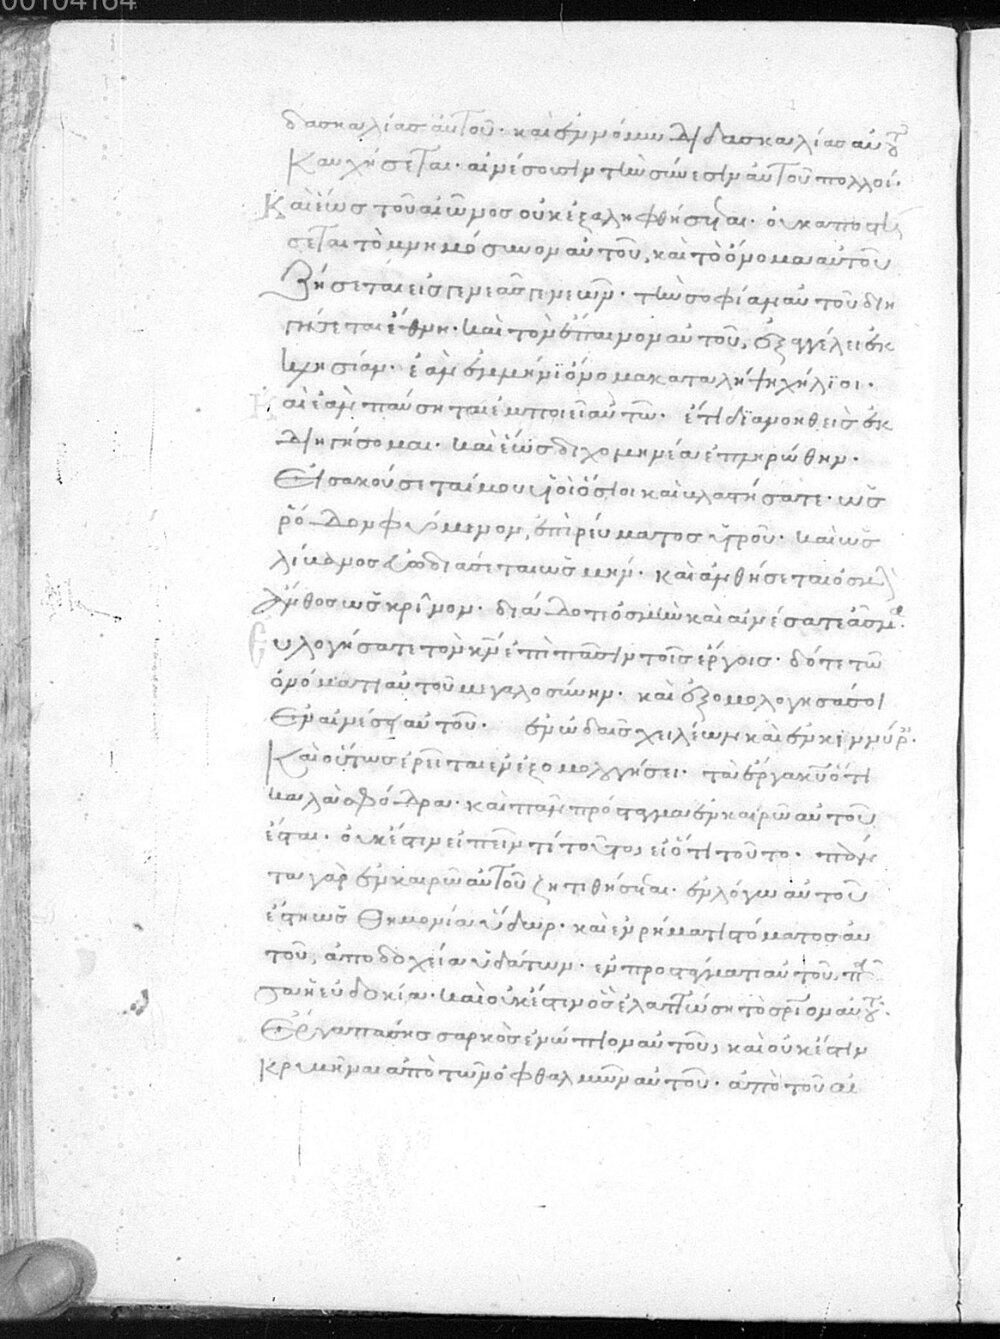 00104164
δασκαλίας αὐτοῦ· καὶ ἐν νόμω διδασκαλίας αὐτοῦ
καυχήσεται· αἰνέσουσιν τὴν σύνεσιν αὐτοῦ πολλοί·
Καὶ ἕως τοῦ αἰῶνος οὐκ ἐξαληφθήσεται· οὐκ ἀποστή
σεται τὸ μνημόσυνον αὐτοῦ, καὶ τὸ ὄνομα αὐτοῦ
ζήσεται εἰς γενεὰς γενεῶν· τὴν σοφίαν αὐτοῦ διη
γήσεται ἔθνη· καὶ τὸν ἔπαινον αὐτοῦ, ἐξαγγέλει ἐκ
κλησίαν· ἐὰν ἐνμήνϊ ὄνομα καταλήψη χήλϊοι·
Καὶ ἐὰν παύσηται ἐμποιεῖ αὐτῶ· ἔτι διανοηθεὶς ἐκ
διηγήσομαι· καὶ ἕως διχομηνία ἐπληρώθην·
Εἰσακούσεταί μου υἱοὶ ὅσιοι καὶ βλαστήσατε· ὡς
ῥόδον φυόμενον, ἐπὶ ῥεύματος ὑγροῦ· καὶ ὡς
λίβανος εὐωδιάσεται ὀσμήν· καὶ ἀνθήσεται ὀσμὴ
ἄνθος ὡς κρίνον· διάδοτι ὀσμὴν καὶ αἰνέσατε ἆσμα·
Εὐλογήσατε τὸν κν ἐπὶ πᾶσιν τοῖς ἔργοις· δότε τῶ
ὀνόματι αὐτοῦ μεγαλοσύνην· καὶ ἐξομολογησασθε
ἐν αἰνέσει αὐτοῦ· ἐν ὠδαῖς χειλέων καὶ ἐν κιννύραις·
Καὶ οὕτως ἐρεῖται ἐν ἐξομολογήσει· τὰ ἔργα κυ ὅτι
καλὰ σφόδρα· καὶ πᾶν πρόσταγμα ἐν καιρῶ αὐτοῦ
ἔσται· οὐκ ἔστιν εἰπεῖν τί τοῦτο, εἰς ὅτι τοῦτο· πάν
τα γὰρ ἐν καιρῶ αὐτοῦ ζητιθήσεται· ἐν λόγω αὐτοῦ
ἔστη ὡς θημονία ὕδωρ· καὶ ἐν ῥήματι στόματος αὐ
τοῦ, ἀποδοχεία ὑδάτων· ἐν προστάγματι αὐτοῦ, πᾶ
σα ἡ εὐδοκία· καὶ οὐκ ἔστιν ὃς ἐλαττώση τὸ σριον αὐτοῦ·
Ἔργα πάσης σαρκὸς ἐνώπιον αὐτοῦ, καὶ οὐκ ἔστιν
κρυβῆναι ἀπὸ τῶν ὀφθαλμῶν αὐτοῦ· ἀπὸ τοῦ αἰ